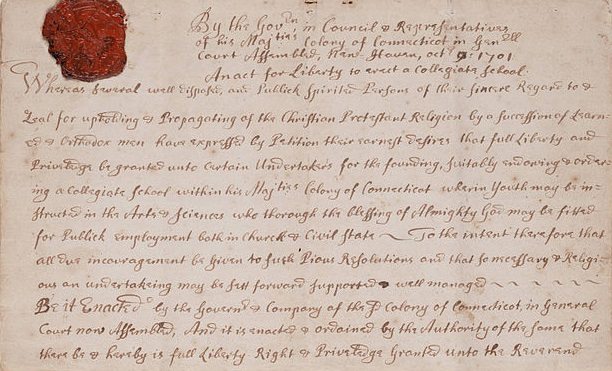 By the Govrn, in Council & Representatives
of his Majties Colony of Connecticut in Genrll
Court Assembled, New-Haven, octr 9: 1701
An act for Liberty to erect a Collegiate School.
Whereas Several well disposed, and Publick Spirited Persons of their Sincere Regard to &
Zeal for upholding & Propagating of the Christian Protestant Religion by a succession of Learn-
ed & Orthodox men have expressed by Petition their earnest desires that full Liberty and
Priveledge be granted unto Certain Undertakers for the founding, suitably endowing & order-
ing a Collegiate School within his Majties Colony of Connecticut wherein Youth may be in-
structed in the Arts & Sciences who thorough the blessing of Almighty God may be fitted
for Publick employment both in Church & Civil State ~ To the intent therefore that
all due incouragement be Given to such Pious Resolutions and that so necessary & Religi-
ous an undertakeing may be sett forward supported & well managed ~ ~ ~ ~ ~ ~
Be it Enacted by the Governr & Company of the sd Colony of Connecticut, in General
Court now Assembled, And it is enacted & ordained by the Authority of the same that
there be & hereby is full Liberty Right & Priveledge Granted unto the Reverend